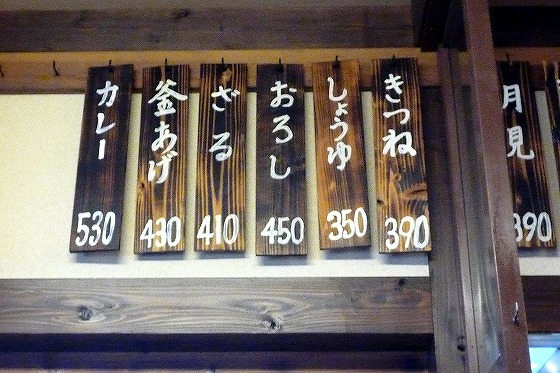 カレー
530
釜あげ
430
ざる
410
おろし
450
しょうゆ
350
きつね
390
月見
390